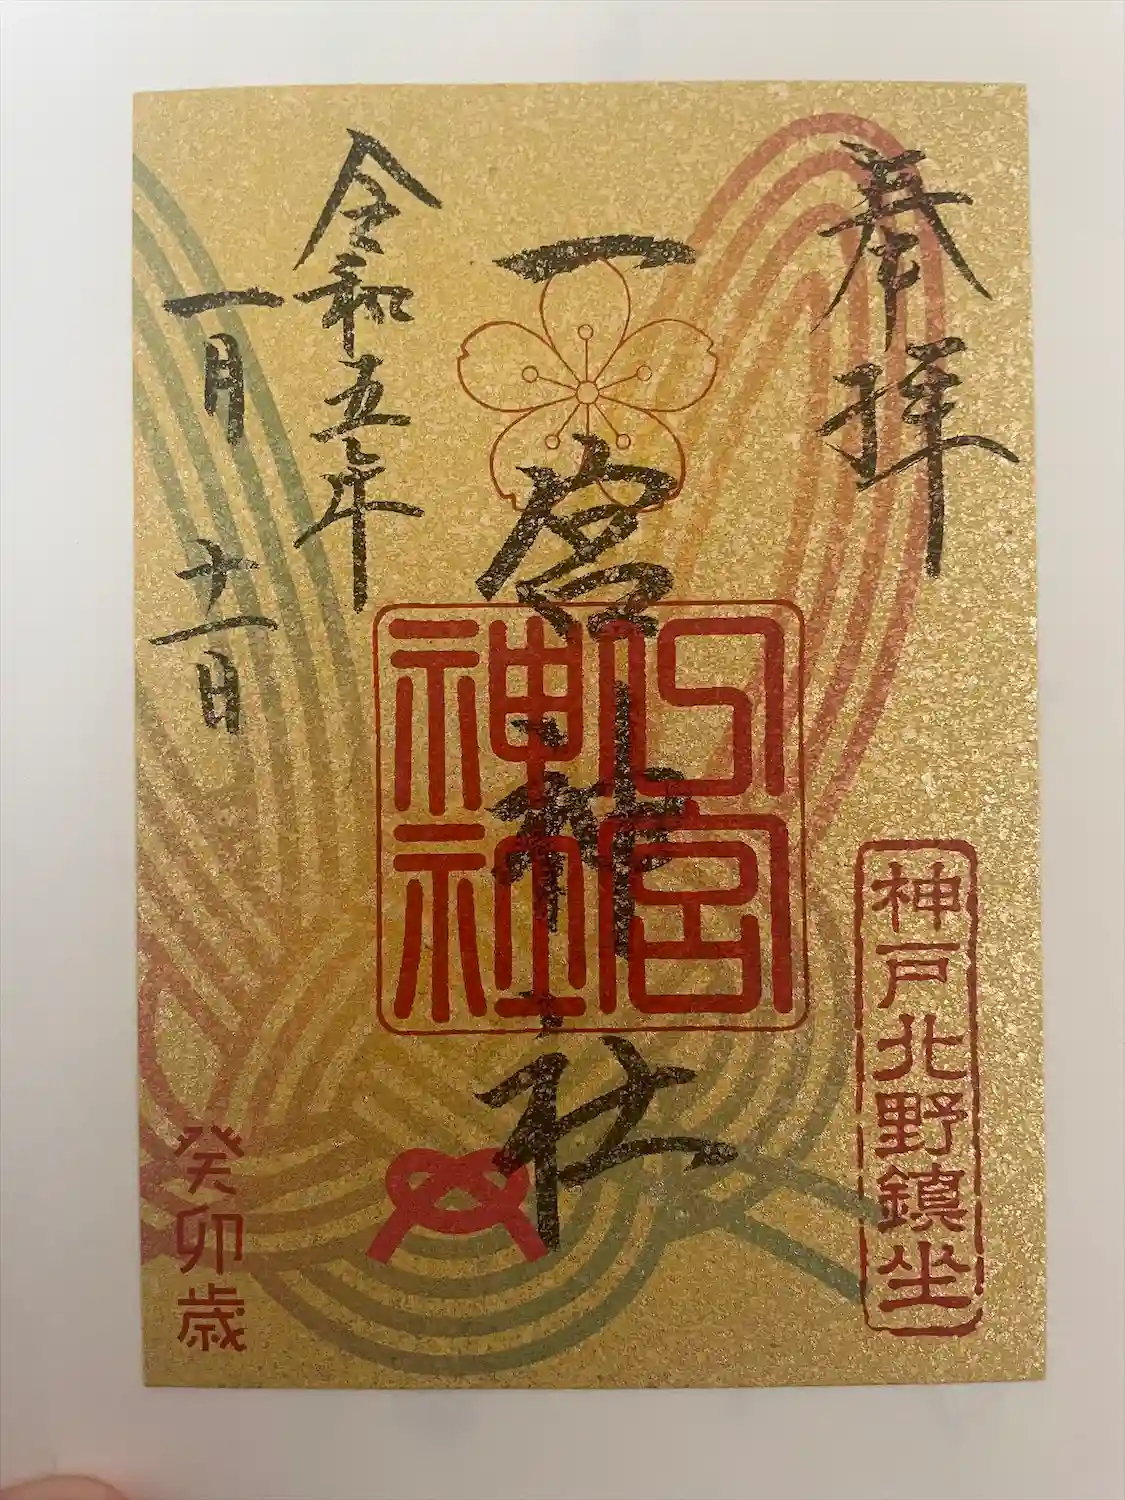 奉拝
神戸北野鎮坐
一宮神社
一宮
神社
令和五年
一月十一日
癸卯歳